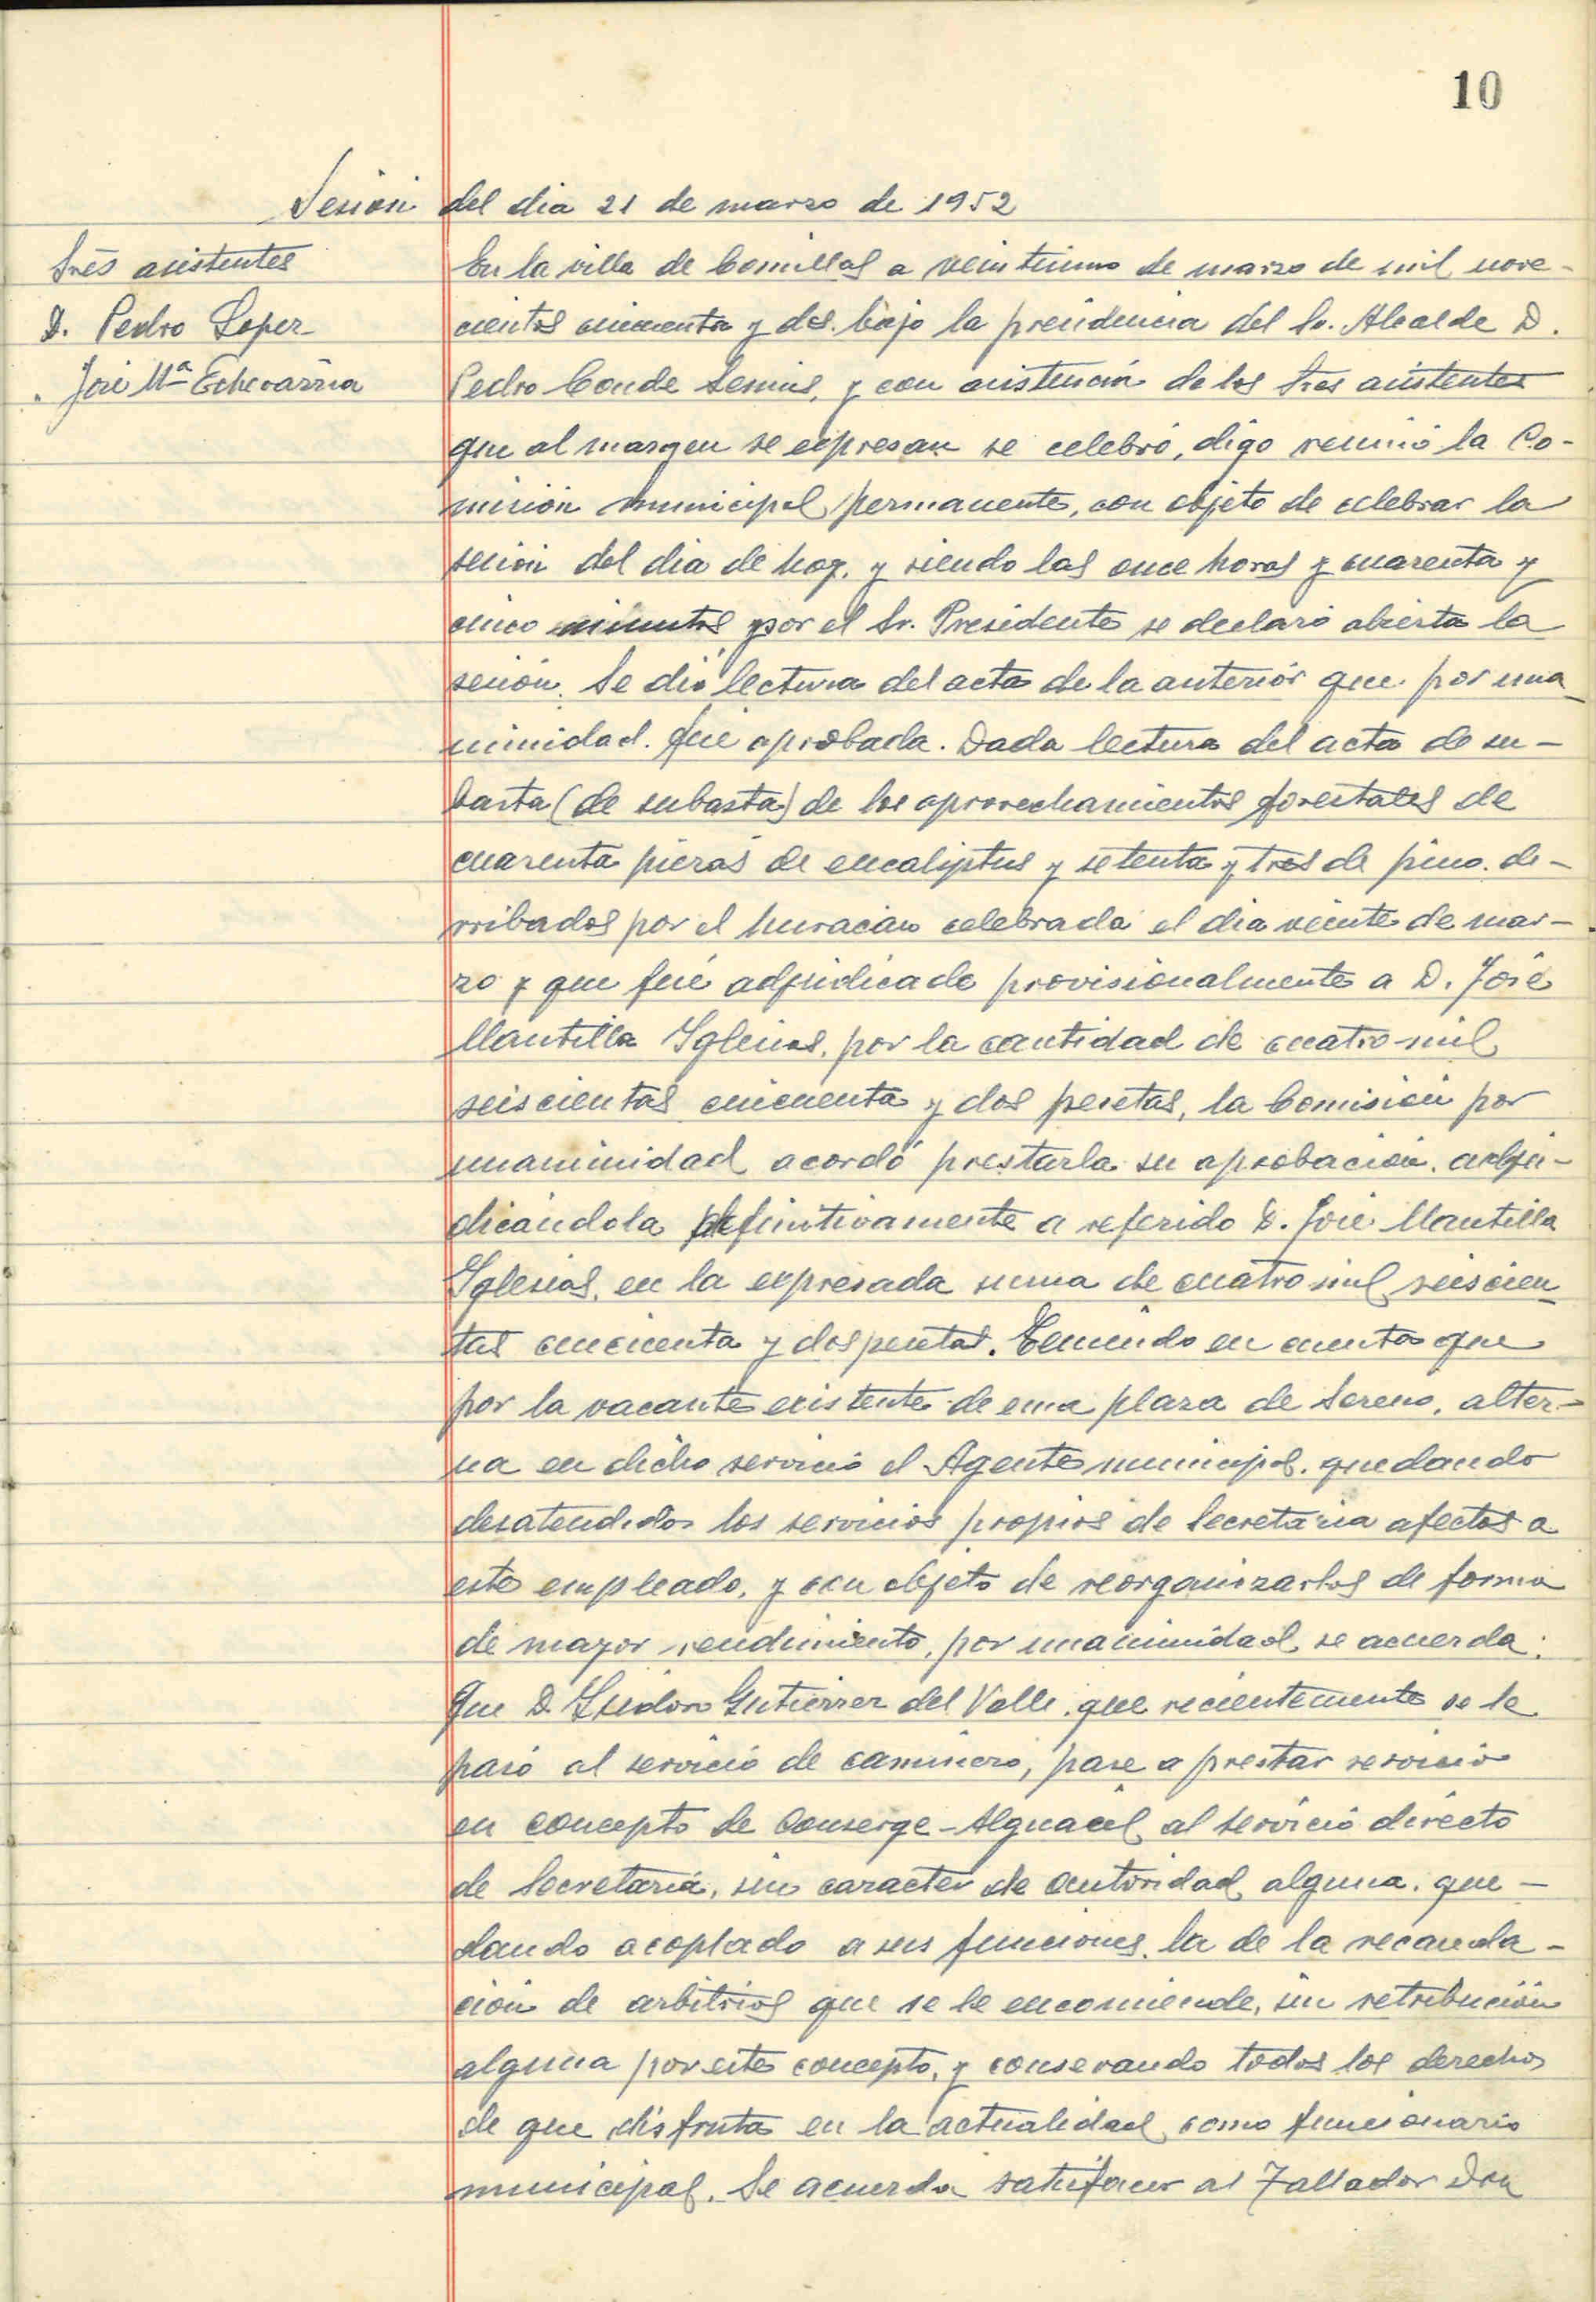 10
Sesión del dia 21 de marzo de 1952
Sres asistentes
D. Pedro Lopez
" José Mª Echevarria
En la villa de Comillas a veintiuno de marzo de mil nove-
cientos cincuenta y dos. bajo la presidencia del Sr. Alcalde D.
Pedro Conde, y con asistencia de los Sres asistentes
que al margen se expresan se celebró, digo reunió la Co-
misión municipal permanente, con objeto de celebrar la
sesión del dia de hoy. y siendo las once horas y cuarenta y
cinco minutos, por el Sr. Presidente se declaró abierta la
sesión. Se dió lectura del acta de la anterior que por una-
nimidad. fué aprobada. Dada lectura del acta de su-
basta (de subasta) de los aprovechamientos forestales de
cuarenta piezas de eucaliptus y setenta y tres de pino. de-
rribados por el huracán celebrada el dia veinte de mar-
zo y que fué adjudicada provisionalmente a D. José
Mantilla Iglesias, por la cantidad de cuatro mil
seiscientas cincuenta y dos pesetas, la Comisión por
unanimidad acordó prestarla su aprobación. adju-
dicándola definitivamente a referido D. José Mantilla
Iglesias, en la expresada suma de cuatro mil seiscien-
tas cincuenta y dos pesetas. Teniendo en cuenta que
por la vacante existente de una plaza de Sereno, alter-
na en dicho servicio el Agente municipal. quedando
desatendidos los servicios propios de Secretaria afectos a
este empleado, y con objeto de reorganizarlos de forma
de mayor rendimiento, por unanimidad se acuerda:
Que D. Isidoro Gutierrez del Valle, que recientemente se le
pasó al servicio de caminero, pase a prestar servicio
en concepto de Conserge-Alguacil al servicio directo
de Secretaria, sin caracter de autoridad alguna. que-
dando acoplado a sus funciones, la de la recauda-
ción de arbitrios que se le encomiende, sin retribución
alguna por este concepto, y conservando todos los derechos
de que disfruta en la actualidad como funcionario
municipal. Se acuerda satisfacer al Tallador Don